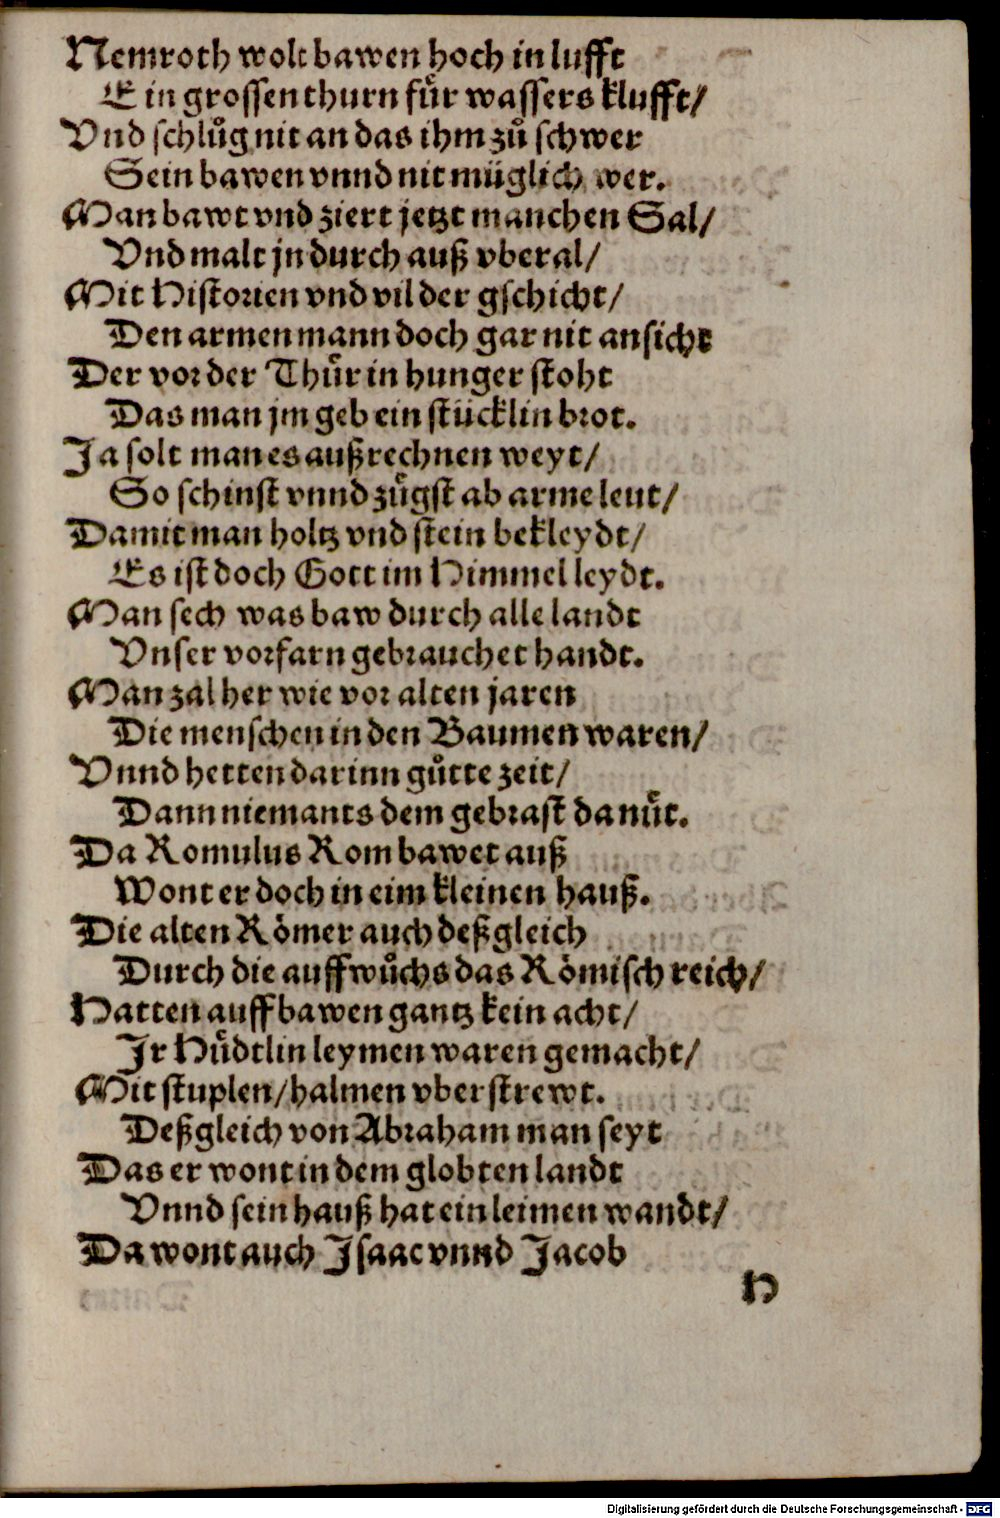 Nemroth wolt bawen hoch in lufft
Ein grossen thurn fuͤr wassers klufft/
Vnd schluͦg nit an das ihm zuͦ schwer
Sein bawen vnnd nit müglich wer.
Man bawt vnd ziert jetzt manchen Sal/
Vnd malt jn durch auß vberal/
Mit Historien vnd vil der gschicht/
Den armen mann doch gar nit ansicht
Der vor der Thuͤr in hunger stoht
Das man jm geb ein stücklin brot.
Ja solt man es außrechnen weyt/
So schinst vnnd zuͤgst ab arme leut/
Damit man holtz vnd stein bekleydt/
Es ist doch Gott im Himmel leydt.
Man sech was baw durch alle landt
Vnser vorfarn gebrauchet handt.
Man zal her wie vor alten jaren
Die menschen in den Baumen waren/
Vnnd hetten darinn guͦtte zeit/
Dann niemants dem gebrast da nuͤt.
Da Romulus Rom bawet auß
Wont er doch in eim kleinen hauß.
Die alten Römer auch deßgleich
Durch die auffwuͦchs das Römisch reich/
Hatten auff bawen gantz kein acht/
Jr Huͤdtlin leymen waren gemacht/
Mit stuplen/halmen vberstrewt.
Deßgleich von Abraham man seyt
Das er wont in dem globten landt
Vnnd sein hauß hat ein leimen wandt/
Da wont auch Jsaac vnnd Jacob
H
Digitalisierung gefördert durch die Deutsche Forschungsgemeinschaft - DFG